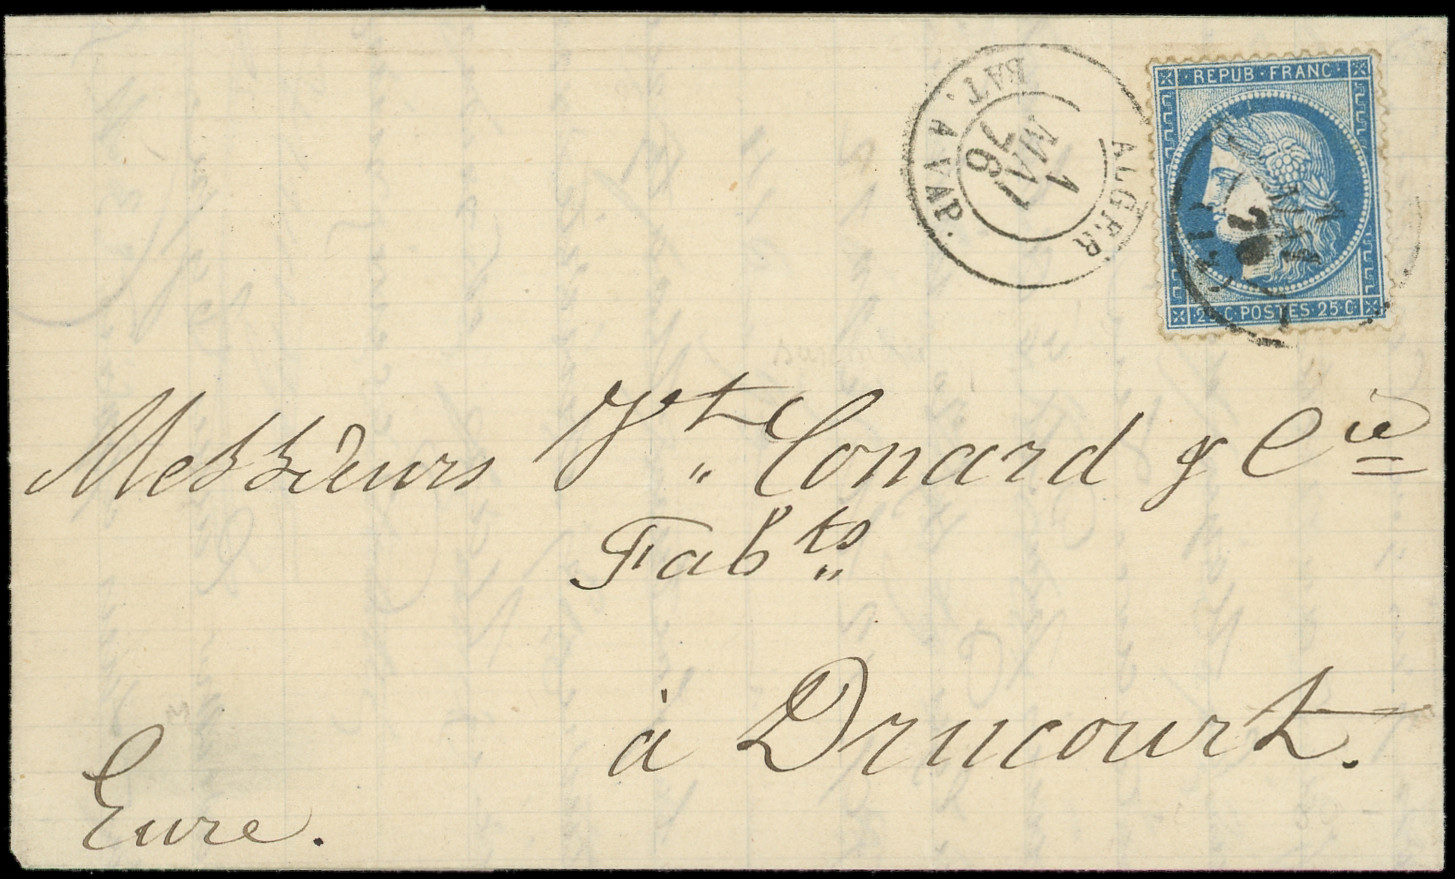 REPUB·FRANC·
25 C·POSTES·25·C
ALGER
BAT. A VAP.
1
MAI
76
Messieurs Vt. Conard & Cie
Fabts
à Drucourt.
Eure.